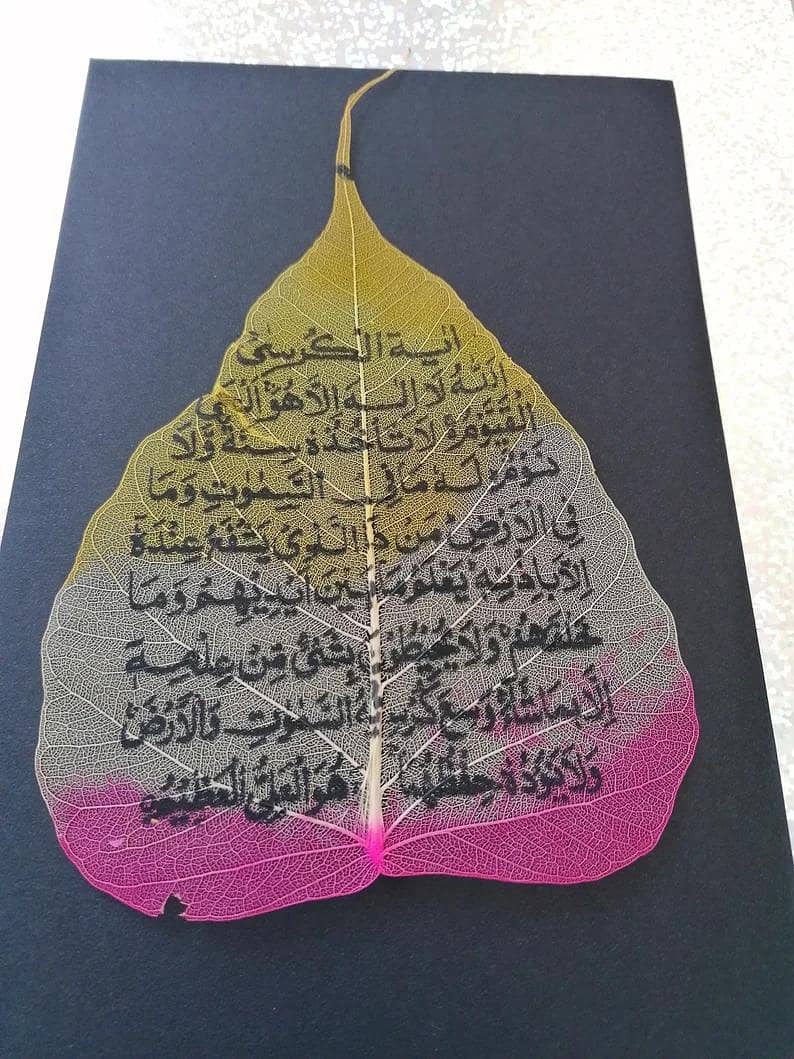 آية الكرسي
اللهُ لَا إِلٰهَ إِلَّا هُوَ الْحَيُّ
الْقَيُّومُ ۚ لَا تَأْخُذُهُ سِنَةٌ وَّلَا
نَوْمٌ لَهُ مَا فِي السَّمٰوٰتِ وَمَا
فِي الْاَرْضِ مَنْ ذَا الَّذِىْ يَشْفَعُ عِنْدَهٗ
اِلَّا بِاِذْنِهٖ يَعْلَمُ مَا بَيْنَ اَيْدِيْهِمْ وَمَا
خَلْفَهُمْ وَلَا يُحِيْطُوْنَ بِشَىْءٍ مِّنْ عِلْمِهٖ
اِلَّا بِمَا شَآءَ وَسِعَ كُرْسِيُّهُ السَّمٰوٰتِ وَالْاَرْضَ
وَلَا يَئُوْدُهٗ حِفْظُهُمَا هُوَ الْعَلِيُّ الْعَظِيْمُ